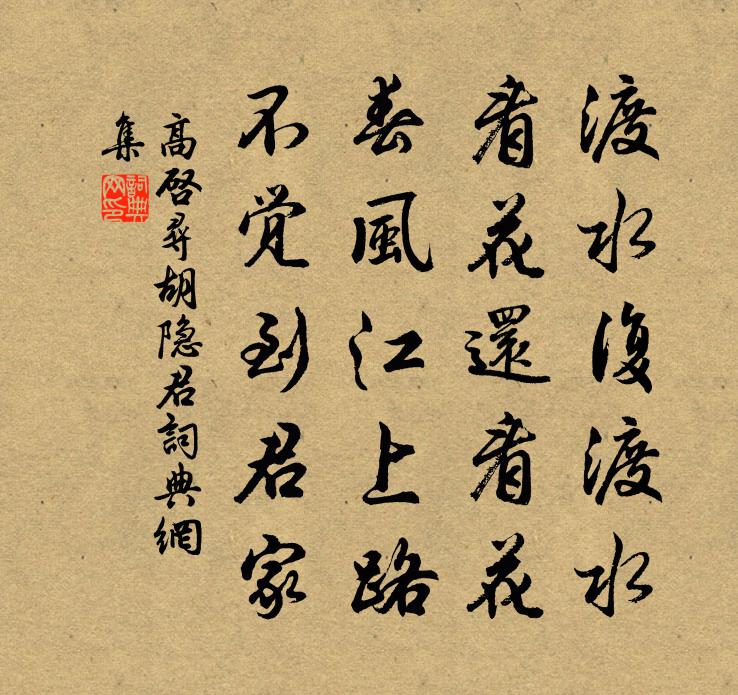 渡水復渡水
看花還看花
春風江上路
不覺到君家
高啓尋胡隐君詞典網
集
詞典
网印